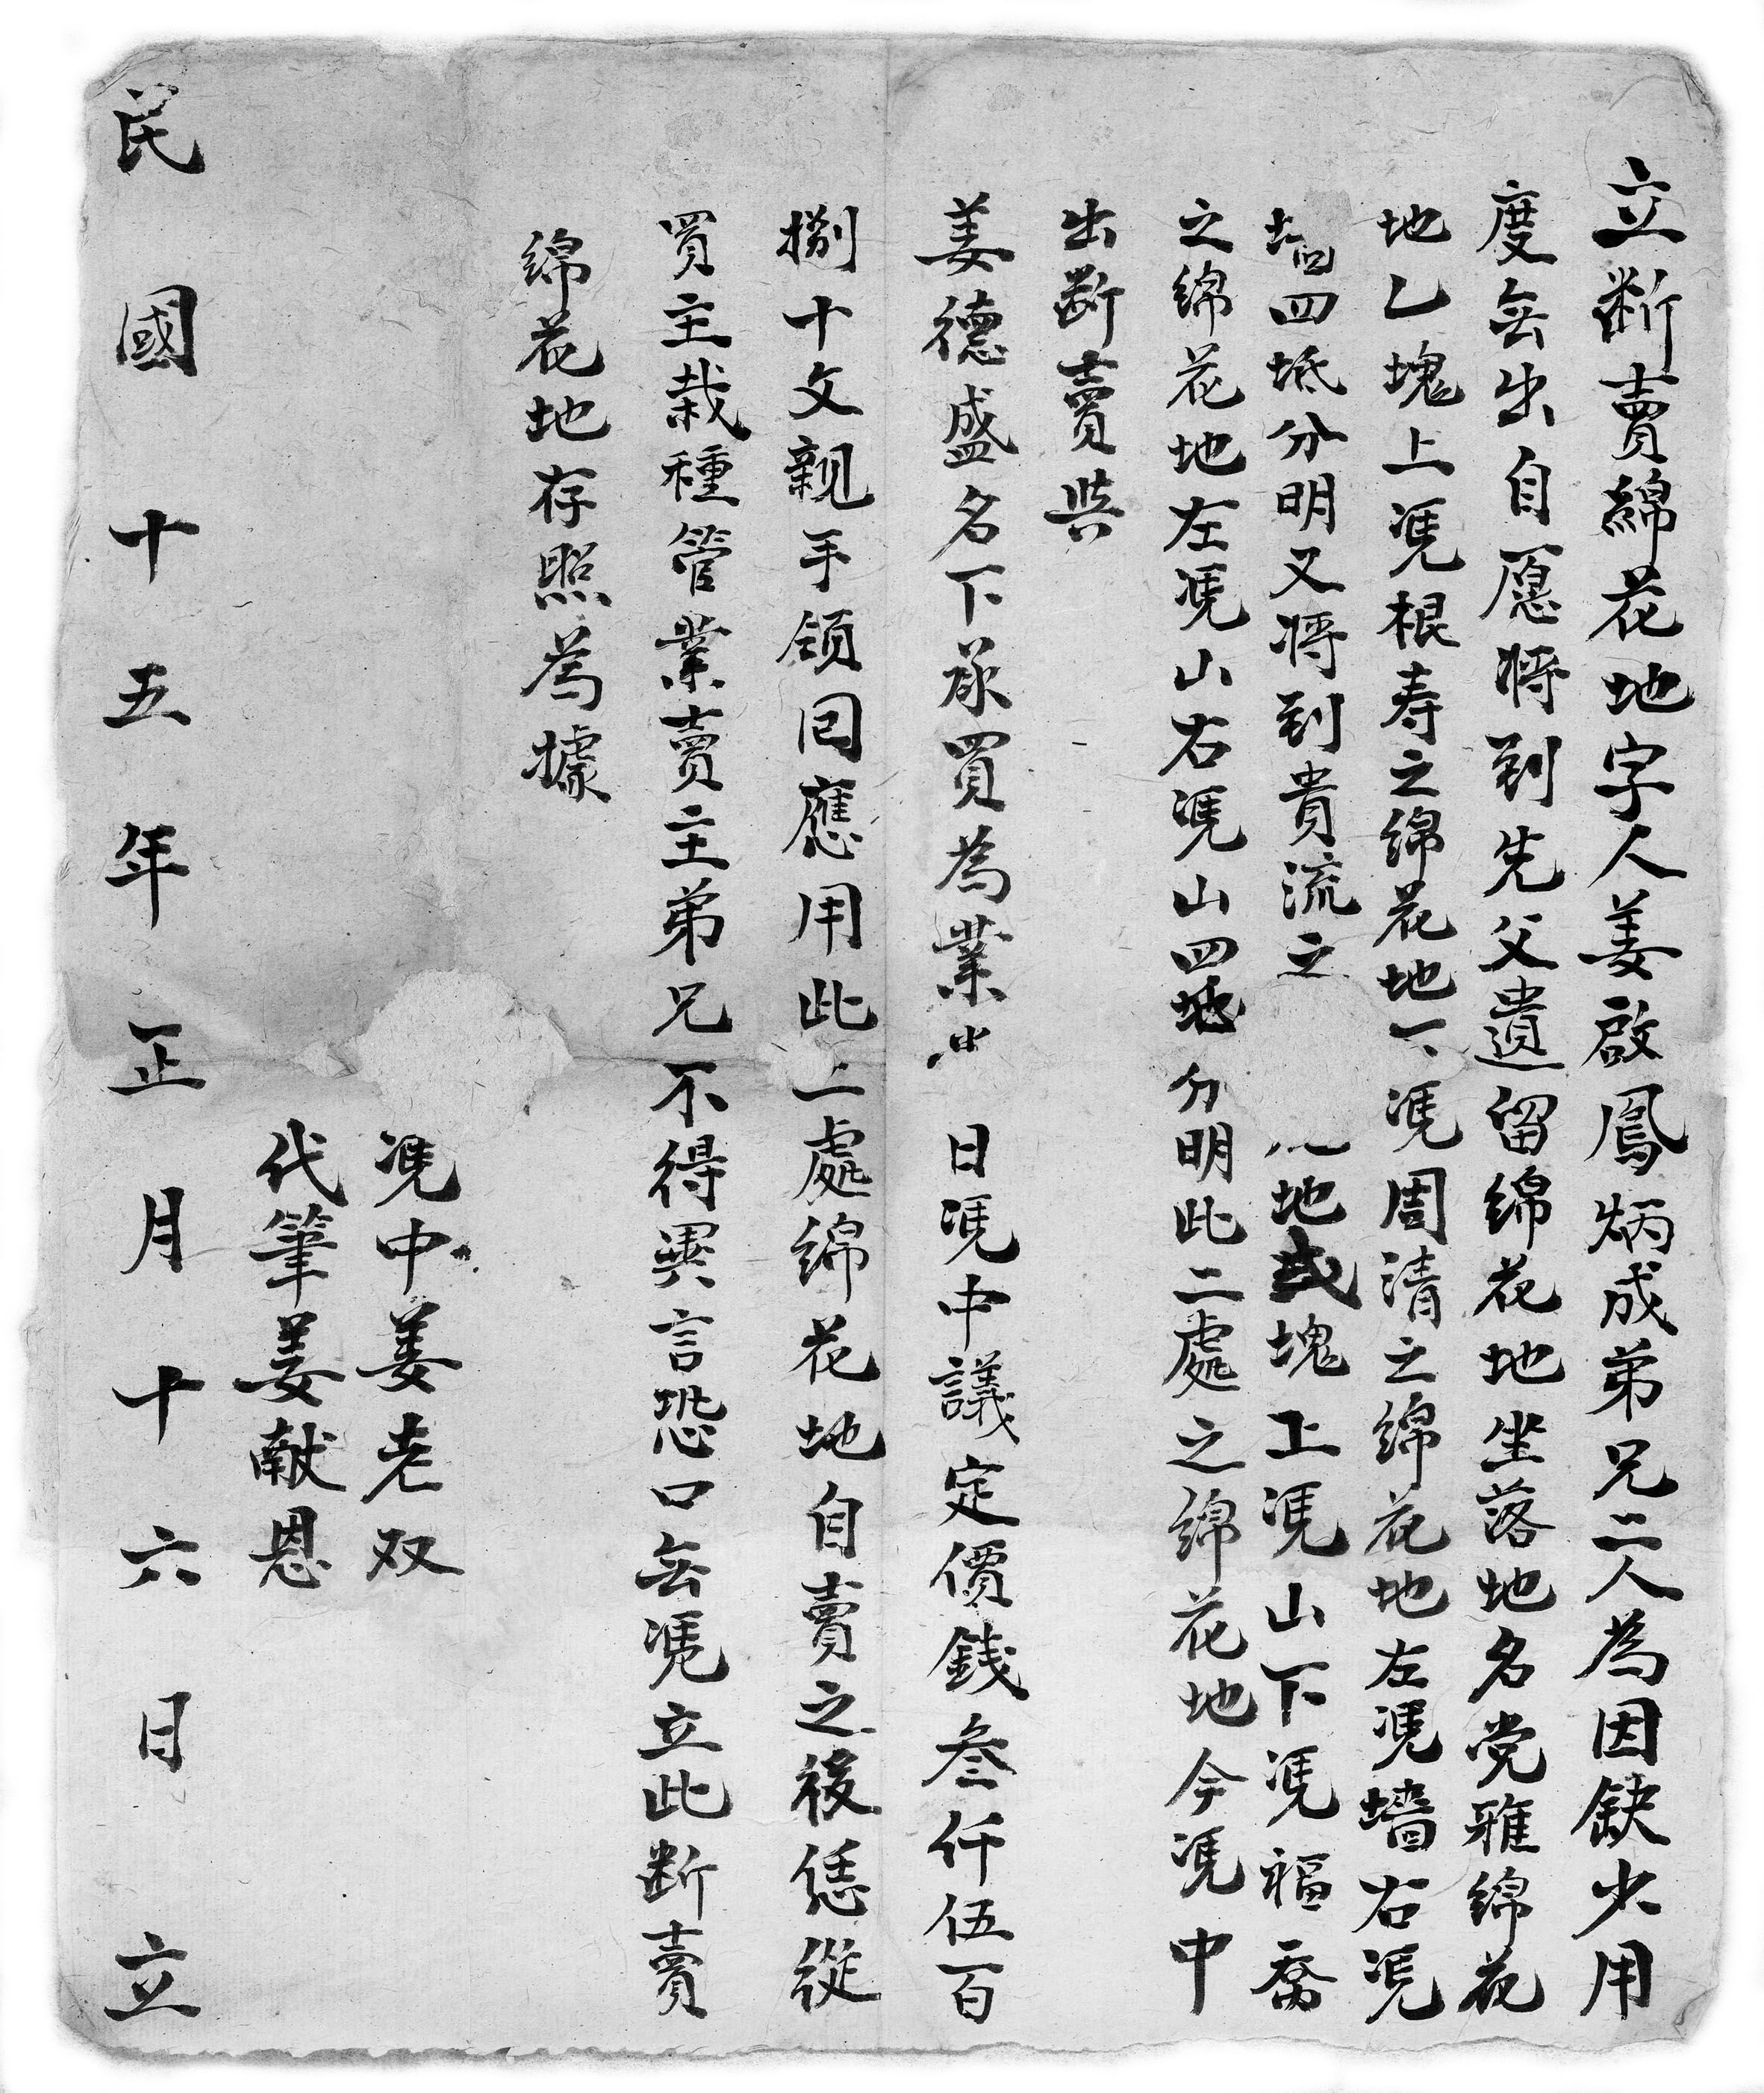 立断賣綿花地字人姜啟鳳炳成弟兄二人為因缺少用
度無出自愿将到先父遺留綿花地坐落地名党雅綿花
地乙塊上凴根寿之綿花地下凴周清之綿花地左凴墙右凴
墙四坻分明又将到貴流之地弍塊上凴山下凴福喬
之綿花地左凴山右凴山四坻分明此二處之綿花地今凴中
出断賣與
姜德盛名下承買為業日凴中議定價銭叁仟伍百
捌十文親手領回應用此二處綿花地自賣之後恁從
買主栽種管業賣主弟兄不得異言恐口無凴立此断賣
綿花地存照為據
凴中姜老双
代筆姜献恩
民國十五年正月十六日立